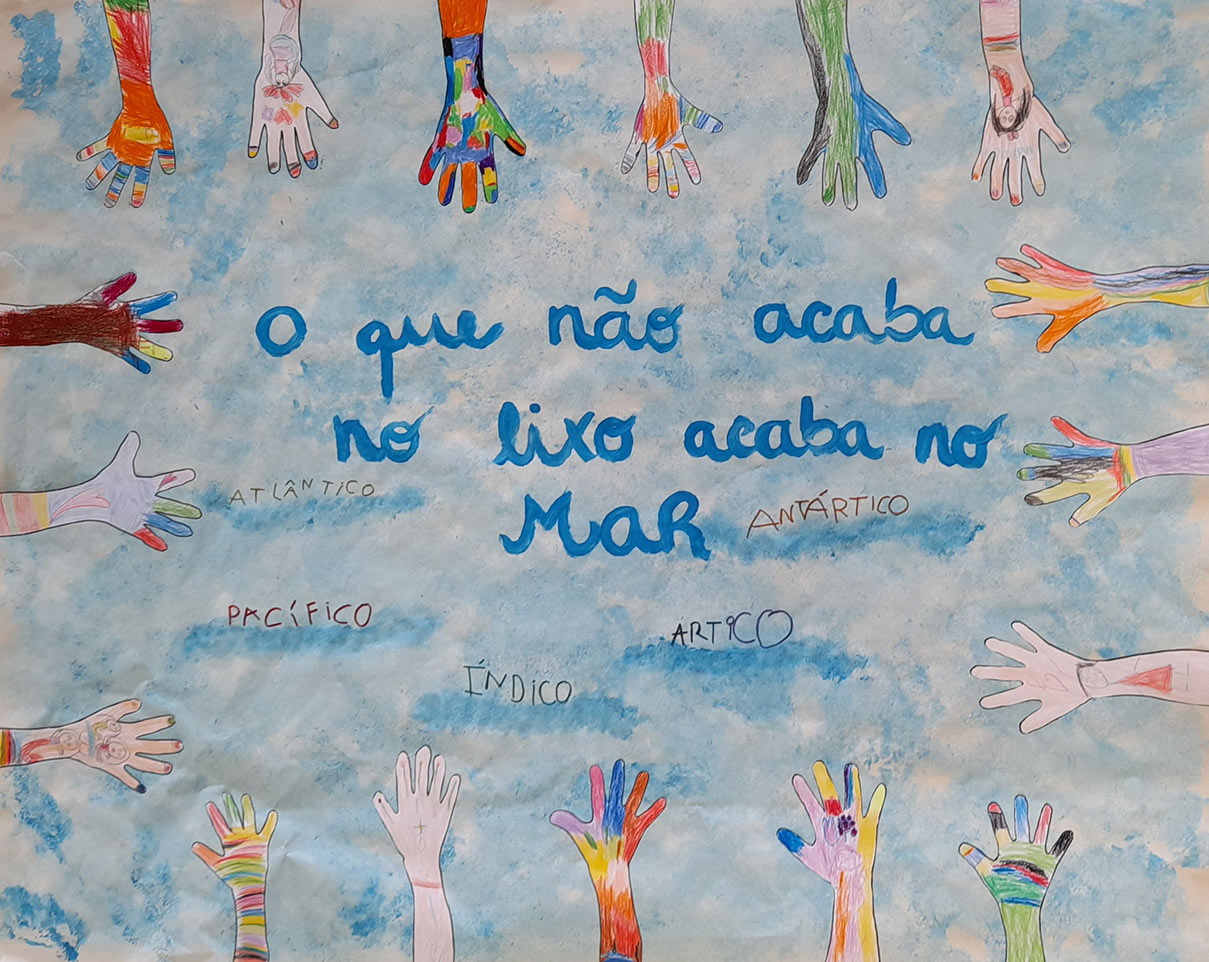 O que não acaba
no lixo acaba no
MaR
ATLÂNTICO
ANTÁRTICO
PACÍFICO
ÁRTICO
ÍNDICO